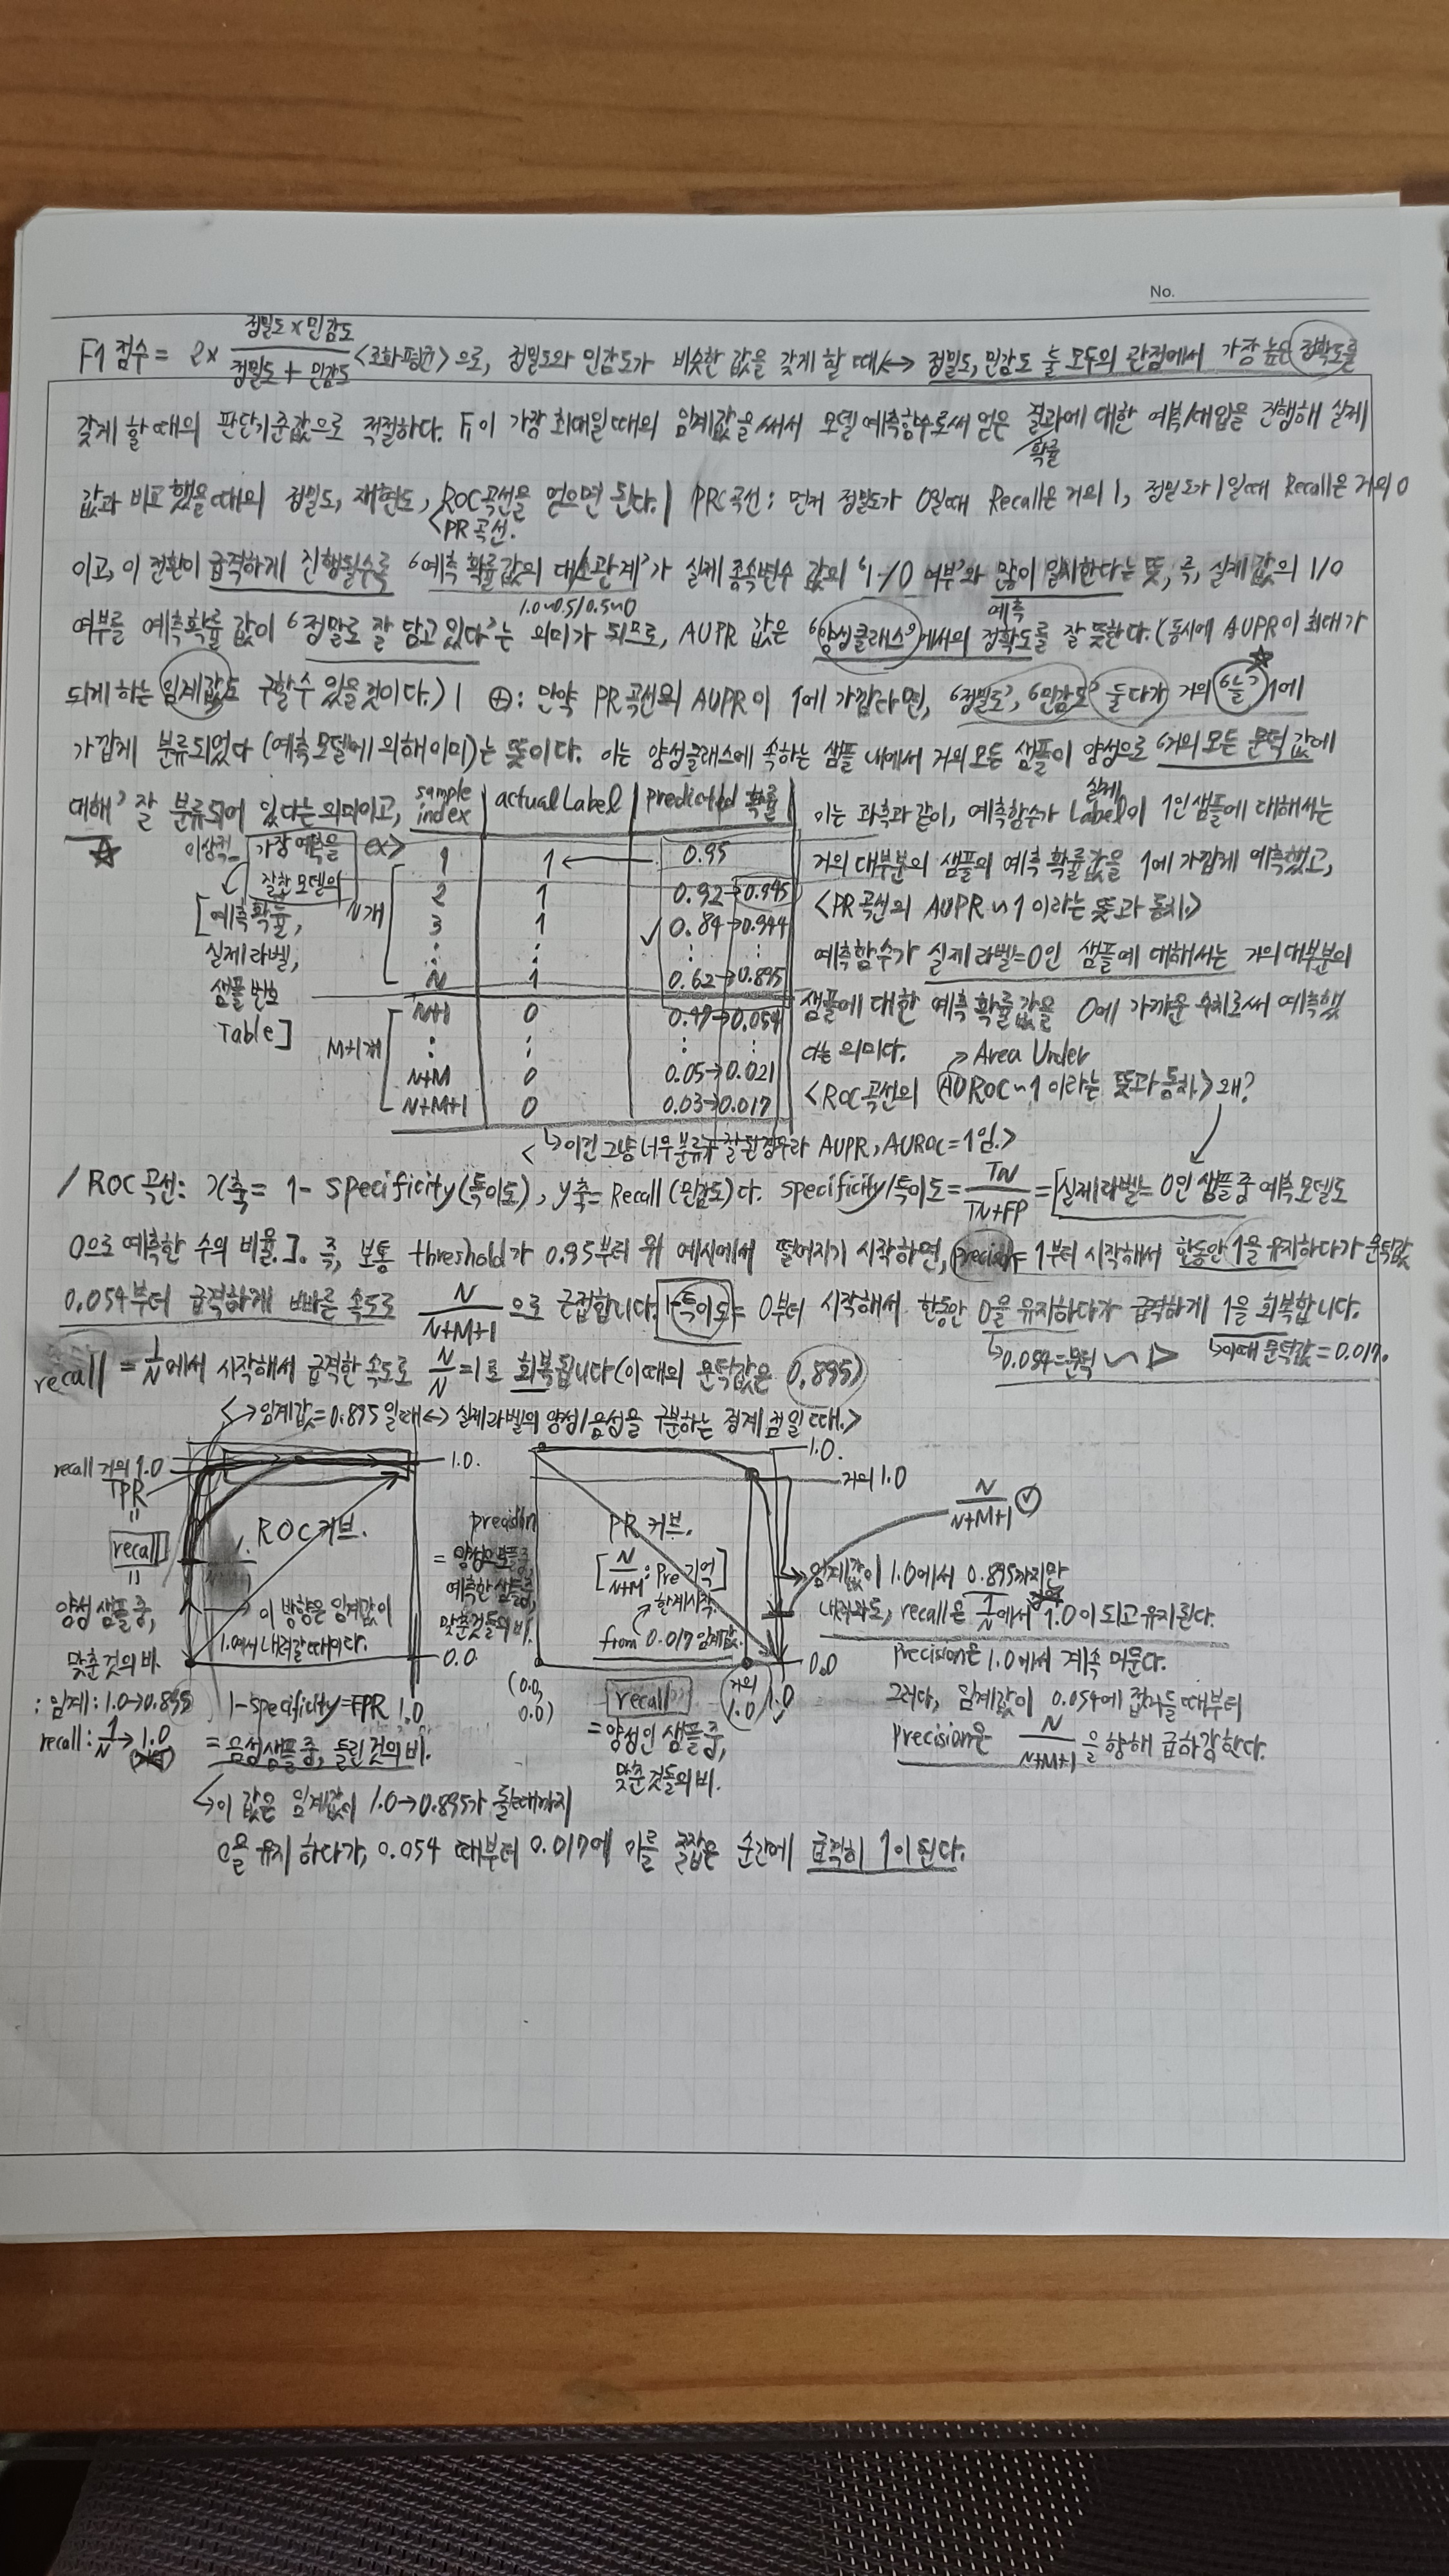 No.
F1 점수 = 2 × 정밀도 × 민감도 / 정밀도 + 민감도 <조화평균> 으로, 정밀도와 민감도가 비슷한 값을 갖게 할 때 ↔ 정밀도, 민감도 둘 모두의 관점에서 가장 높은 정확도를
갖게 할 때의 판단기준값으로 적절하다. F1이 가장 최대일 때의 임계값을 써서 모델 예측함수로써 얻은 결과에 대한 예측/대입을 진행해 실제
확률
값과 비교했을 때의 정밀도, 재현도, ROC곡선을 얻으면 된다. | PRC곡선: 먼저 정밀도가 0일때 Recall은 거의 1, 정밀도가 1일때 Recall은 거의 0
<PR곡선.
이고, 이 전환이 급격하게 진행될수록 '예측 확률값의 대소관계'가 실제 종속변수 값의 '1-/0 여부'와 많이 일치한다는 뜻, 즉, 실제값의 1/0
1.0~0.5/0.5~0 예측
여부를 예측확률 값이 '정말로 잘 담고 있다'는 의미가 되므로, AUPR 값은 '양성클래스'에서의 정확도를 잘 뜻한다. (동시에 AUPR이 최대가
되게 하는 임계값도 구할 수 있을 것이다.) | ⊕: 만약 PR곡선의 AUPR이 1에 가깝다면, '정밀도', '민감도' 둘다가 거의 '늘' 1에
가깝게 분류되었다 (예측모델에 의해 이미)는 뜻이다. 이는 양성클래스에 속하는 샘플 내에서 거의 모든 샘플이 양성으로 '거의 모든 문턱값에
대해' 잘 분류되어 있다는 의미이고,
이상적_ 가장 예측을 잘한 모델의 ex>
[예측 확률,
실제라벨,
샘플 번호
Table]
sample index | actual Label | predicted 확률
1 | 1 ← 0.95
2 | 1 | 0.92→0.945
3 | 1 | 0.84→0.944
⋮ ⋮ ⋮ ⋮
N | 1 | 0.62→0.895
N+1 | 0 | 0.47→0.054
⋮ ⋮ ⋮ ⋮
N+M | 0 | 0.05→0.021
N+M+1 | 0 | 0.03→0.017
N개
M+1개
이는 좌측과 같이, 예측함수가 실제 Label이 1인 샘플에 대해서는
거의 대부분의 샘플의 예측 확률값을 1에 가깝게 예측했고,
<PR곡선의 AUPR ~ 1 이라는 뜻과 동치.>
예측함수가 실제라벨=0인 샘플에 대해서는 거의 대부분의
샘플에 대한 예측 확률값을 0에 가까운 수치로써 예측했
다는 의미다. → Area Under
<ROC곡선의 AUROC ~ 1 이라는 뜻과 동치> 왜?
<↳이건 그냥 너무 분류가 잘 된 경우라 AUPR, AUROC = 1임.>
/ ROC곡선: x축 = 1- specificity(특이도), y축 = Recall (민감도)다. specificity/특이도 = TN / TN+FP = [실제라벨=0인 샘플 중 예측 모델도
0으로 예측한 수의 비율.]. 즉, 보통 threshold가 0.95부터 위 예시에서 떨어지기 시작하면, precision = 1부터 시작해서 한동안 1을 유지하다가 문턱값
0.054부터 급격하게 빠른 속도로 N / N+M+1 으로 근접합니다. 1-특이도 = 0부터 시작해서 한동안 0을 유지하다가 급격하게 1을 회복합니다.
↳0.054=문턱 ↳이때 문턱값=0.017.
recall = 1/N에서 시작해서 급격한 속도로 N/N = 1로 회복됩니다 (이때의 문턱값은 0.895)
<→임계값=0.895일때 ↔ 실제라벨의 양성/음성을 구분하는 경계점일때.>
recall 거의 1.0
TPR
=
recall
=
양성 샘플 중,
맞춘 것의 비.
: 임계: 1.0→0.895
recall: 1/N → 1.0
1.0.
ROC커브.
이 방향은 임계값이
1.0에서 내려갈 때이다.
0.0
1-specificity=FPR 1.0
= 음성샘플중, 틀린 것의 비.
↳이 값은 임계값이 1.0→0.895가 될때까지
0을 유지하다가, 0.054 때부터 0.017에 이를 즉 순간에 급격히 1이 된다.
precision
= 양성으로
예측한 샘플중,
맞춘것들의 비.
PR 커브.
[N / N+M : Pre 기억]
한계시작.
from 0.017 임계값.
(0.0, 0.0)
recall
거의 1.0
1.0
=양성인 샘플 중,
맞춘 것들의 비.
1.0.
거의 1.0
0.0
N / N+M+1
임계값이 1.0에서 0.895까지만
내려와도, recall은 1/N에서 1.0이 되고 유지된다.
Precision은 1.0에서 계속 머문다.
그러다, 임계값이 0.054에 접어들 때부터
Precision은 N / N+M+1 을 향해 급하강한다.